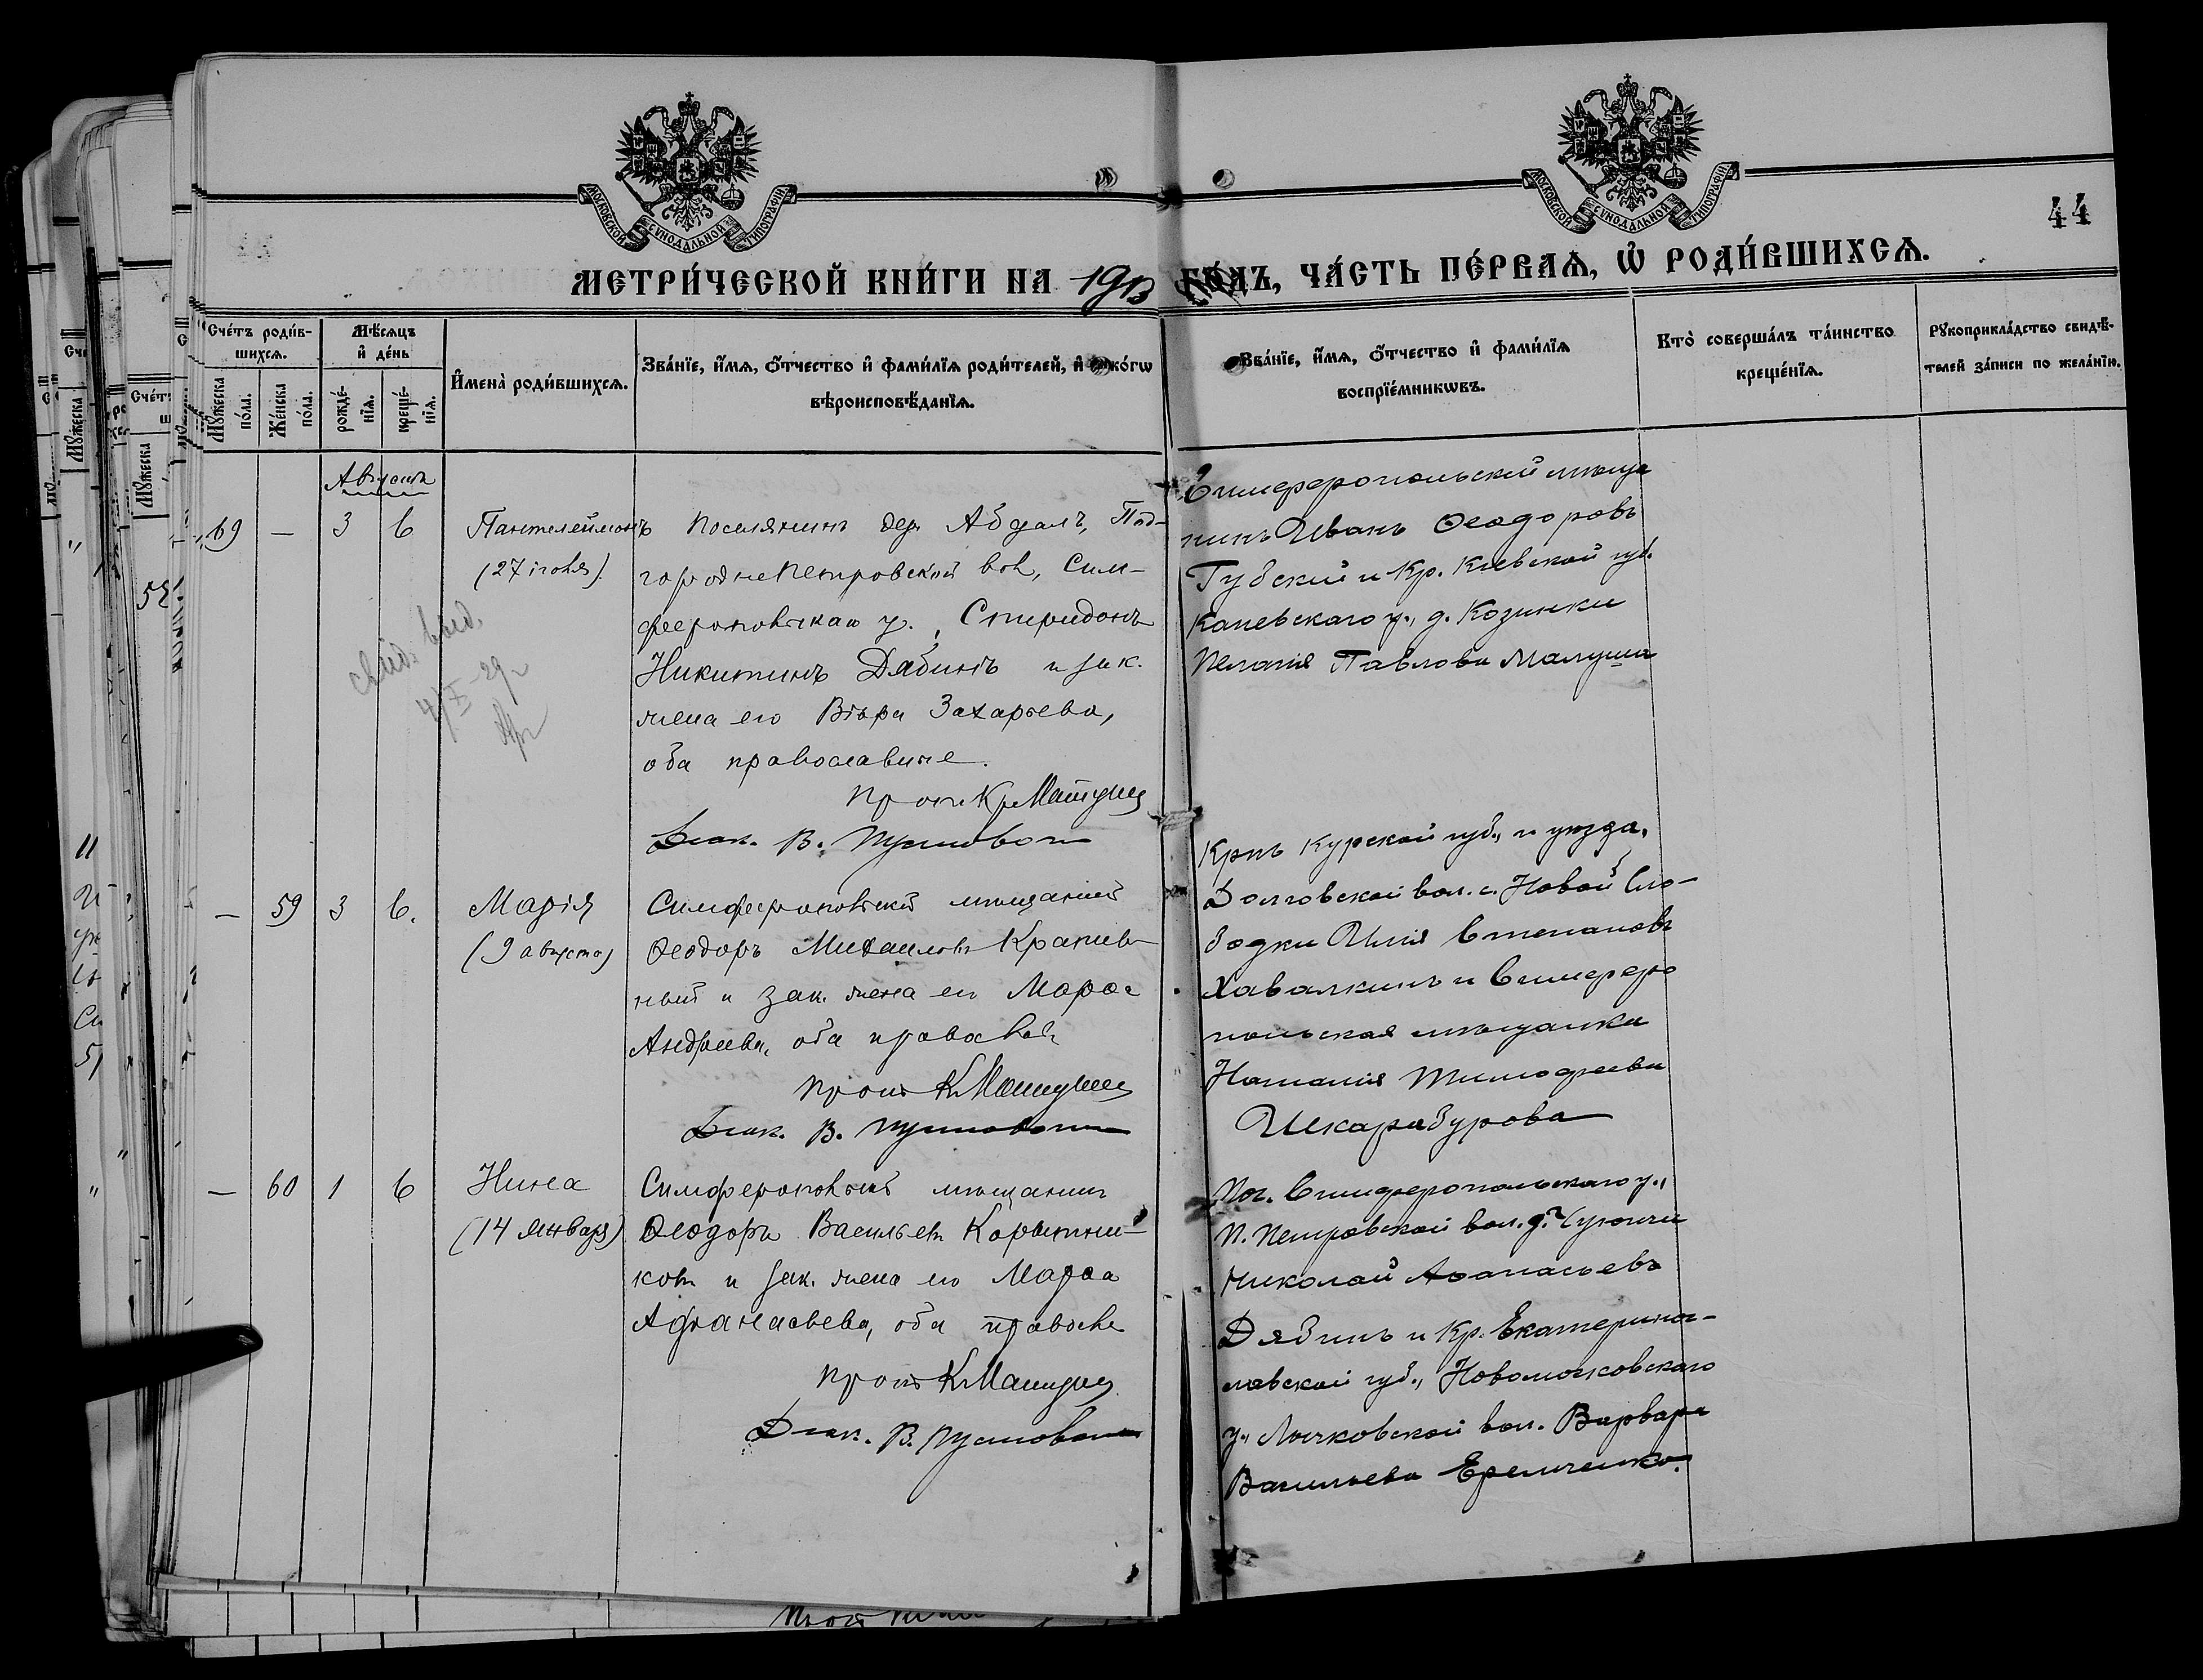 МОСКОВСКОЙ СѴНОДАЛЬНОЙ ТИПОГРАФІИ
МОСКОВСКОЙ СѴНОДАЛЬНОЙ ТИПОГРАФІИ
44
МЕТРИ́ЧЕСКОЙ КНИ́ГИ НА 1913 ГО́ДЪ, ЧА́СТЬ ПЕ́РВАѦ, Ѡ҆ РОДИ́ВШИХСѦ.
Сче́тъ роди́в-
шихсѧ.
Мѣ́сѧцъ
и҆ де́нь
Мꙋ́жеска
по́ла.
Же́нска
по́ла.
рожде́-
нїѧ.
креще́-
нїѧ.
И҆мена̀ роди́вшихсѧ.
Зва́нїе, и҆́мѧ, ѻ҆́тчество и҆ фами́лїѧ роди́телей, и҆ како́гѡ
вѣроисповѣ́данїѧ.
Зва́нїе, и҆́мѧ, ѻ҆́тчество и҆ фами́лїѧ
воспрїе́мникѡвъ.
Кто̀ соверша́лъ та́инство
креще́нїѧ.
Рꙋкоприкла́дство свидѣ́-
телей за́писи по жела́нїю.
Августъ
69 — 3 6 Пантелеймонъ
(27 іюля).
Поселянинъ дер. Абдалъ, Под-
городнеПетровской вол., Сим-
феропольскаго у., Спиридонъ
Никитинъ Дябинъ и зак.
жена его Вѣра Захарьева,
оба православные.
Прот. К. Машуцкі
Діак. В. Пустовой
Симферопольскій мѣща
нинъ Иванъ Ѳеодоровъ
Губскій и Кр. Кіевской губ.
Каневскаго у., д. Козинки
Пелагія Павлова Малуша
свид. выд.
4/X -29г
— 59 3 6. Марія
(9 августа)
Симферопольскій мѣщанинъ
Ѳеодоръ Михаиловъ Крапив-
ный и зак. жена его Марѳа
Андреева, оба правосл.
Прот. К. Машуцкі
Діак. В. Пустовой
Крнъ Курской губ., и уѣзда,
Долговской вол. с. Новой Сло-
бодки Илія Степановъ
Хавалкинъ и Симферо
польская мѣщанка
Наталія Тимофеева
Шкарабурова
— 60 1 6 Нина
(14 января)
Симферопольскій мѣщанинъ
Ѳеодоръ Васильевъ Корытни-
ковъ и зак. жена его Марѳа
Афанасьева, оба правосл.
Прот. К. Машуцкі
Діак. В. Пустовой
Пос. Симферопольскаго у.,
П. Петровской вол. д.
Николай Аѳанасьевъ
Дябинъ и Кр. Екатеринос-
лавской губ., Новомосковскаго
у., Лычковской вол. Варвара
Васильева Еремченко.